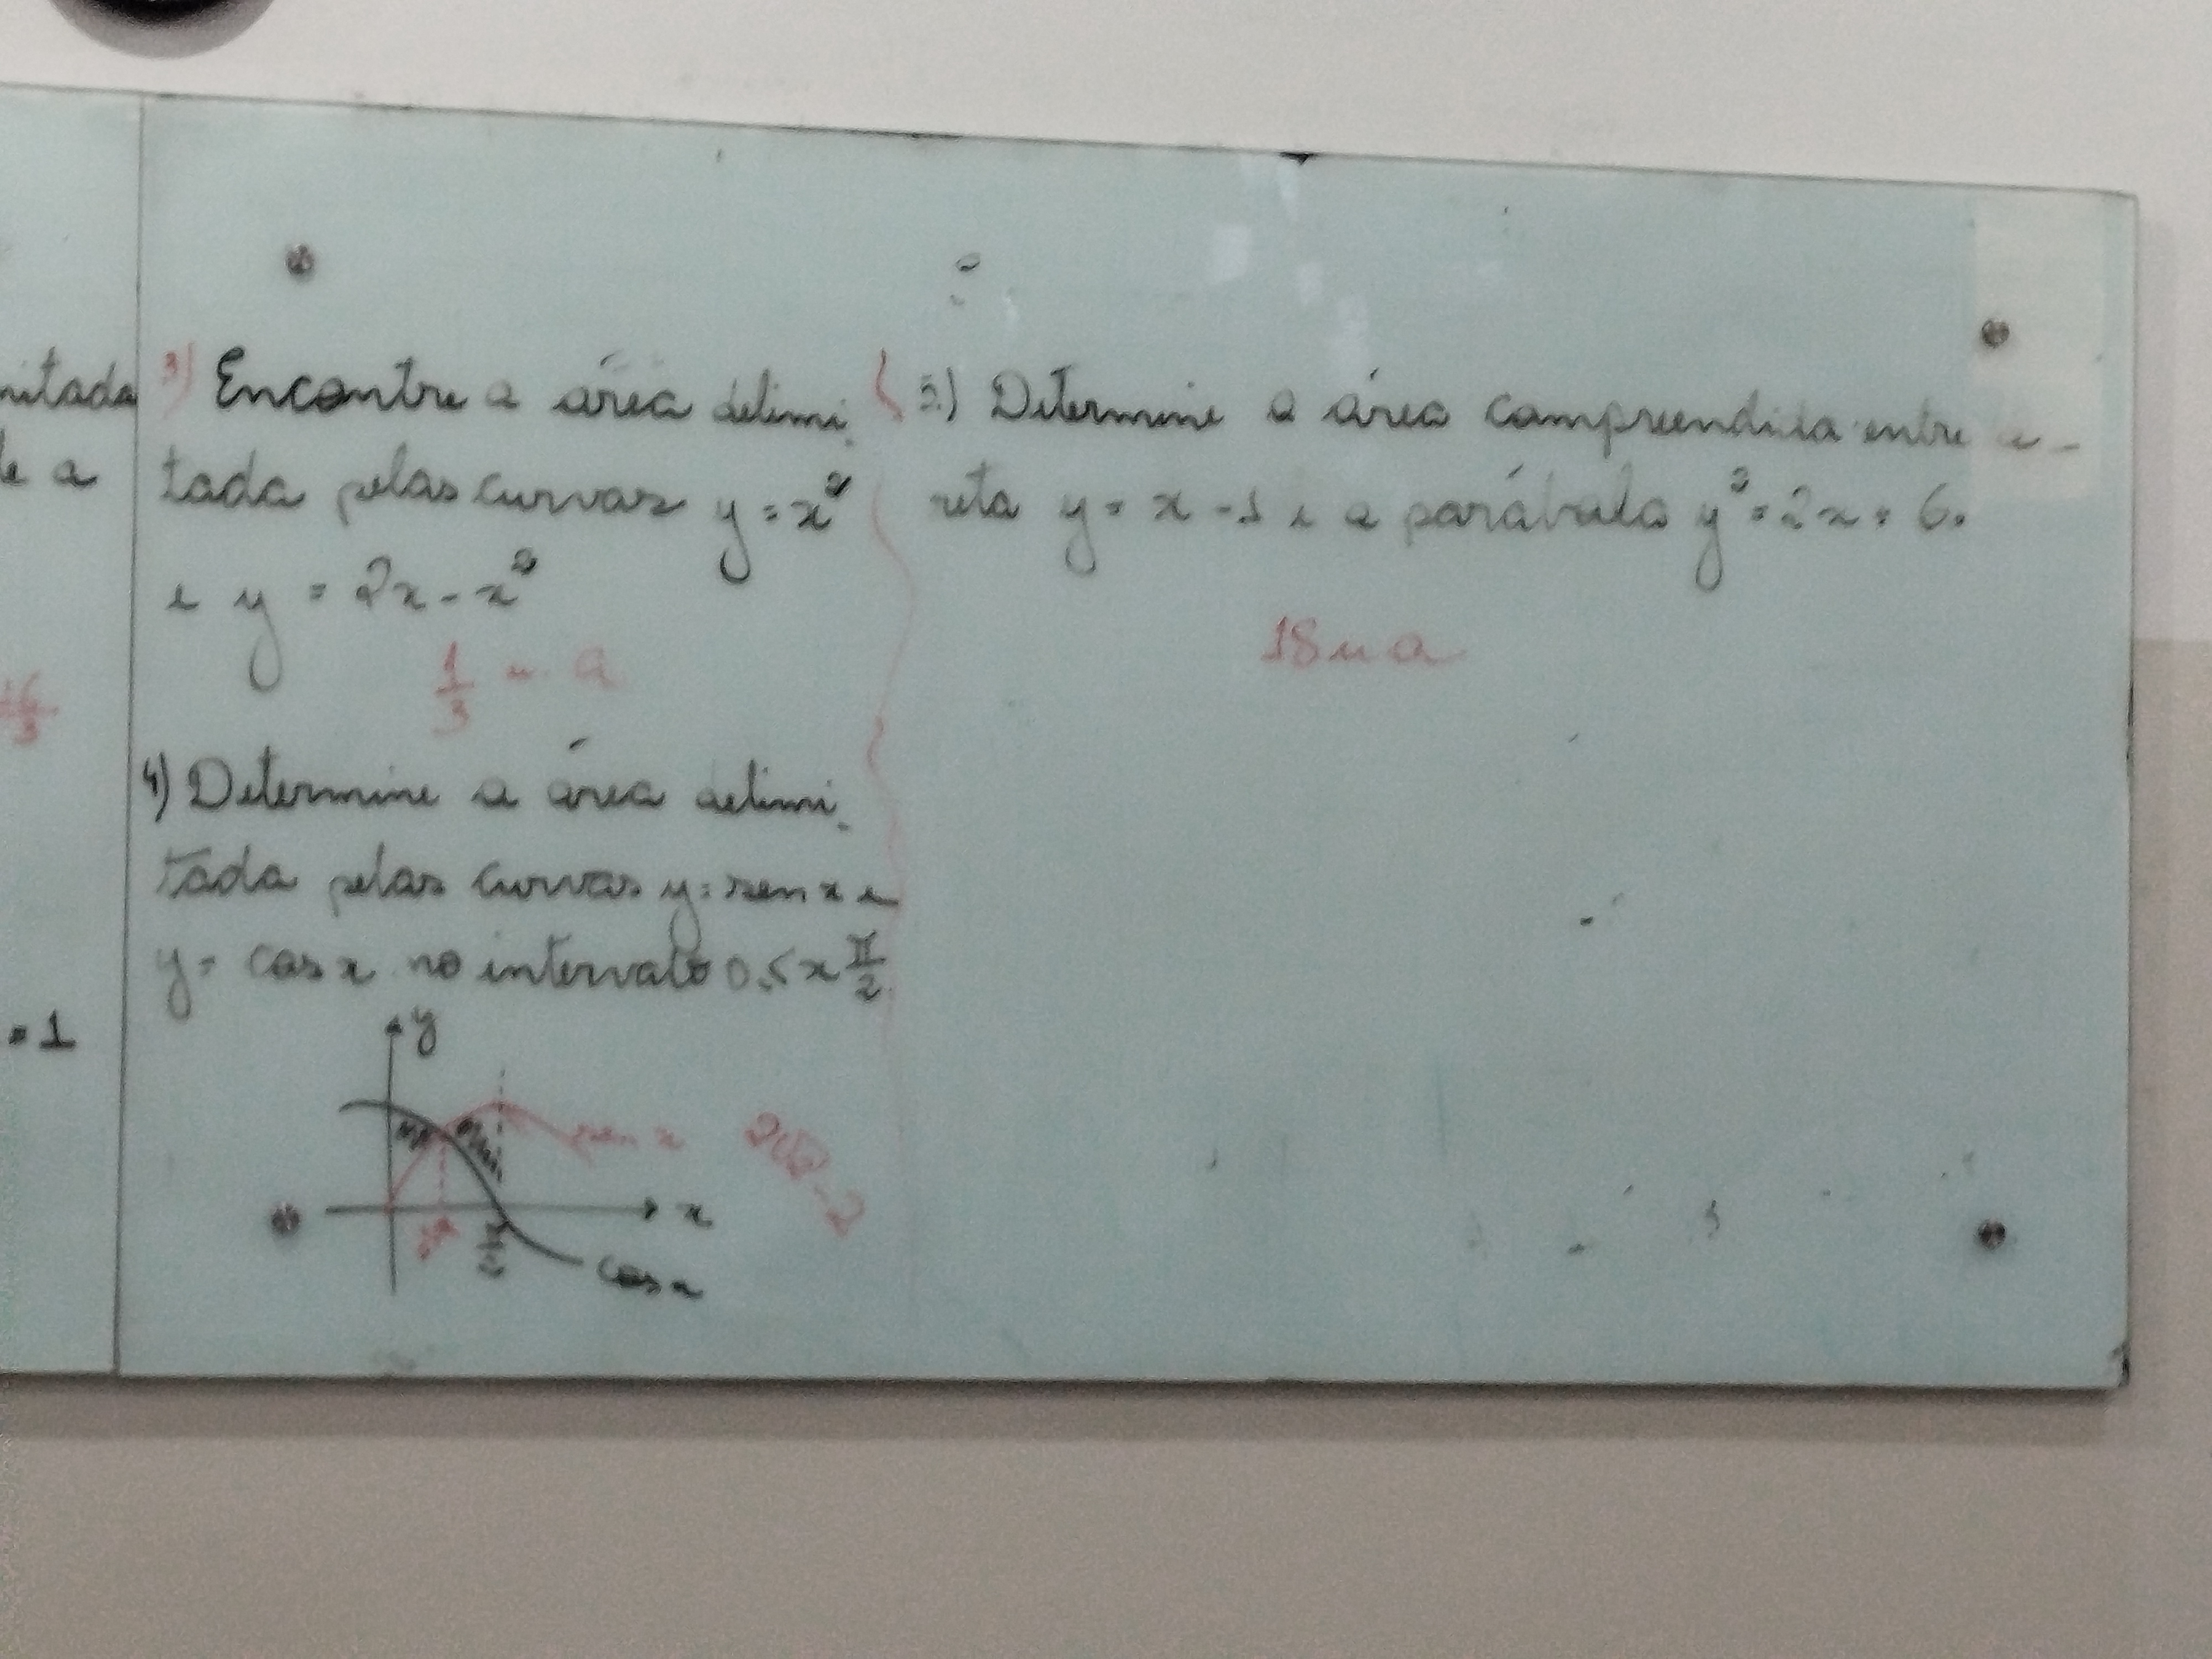 nitada
le a
16/3
= 1
3) Encontre a área delimi
tada pelas curvas y = x²
e y = 2x - x²
1/3 u.a
4) Determine a área delimi
tada pelas curvas y = sen x e
y = cos x no intervalo 0 ≤ x π/2
y
sen x
2√2 - 2
x
π/2
cos x
5) Determine a área compreendida entre a
reta y = x - 1 e a parábola y² = 2x + 6.
18 u a